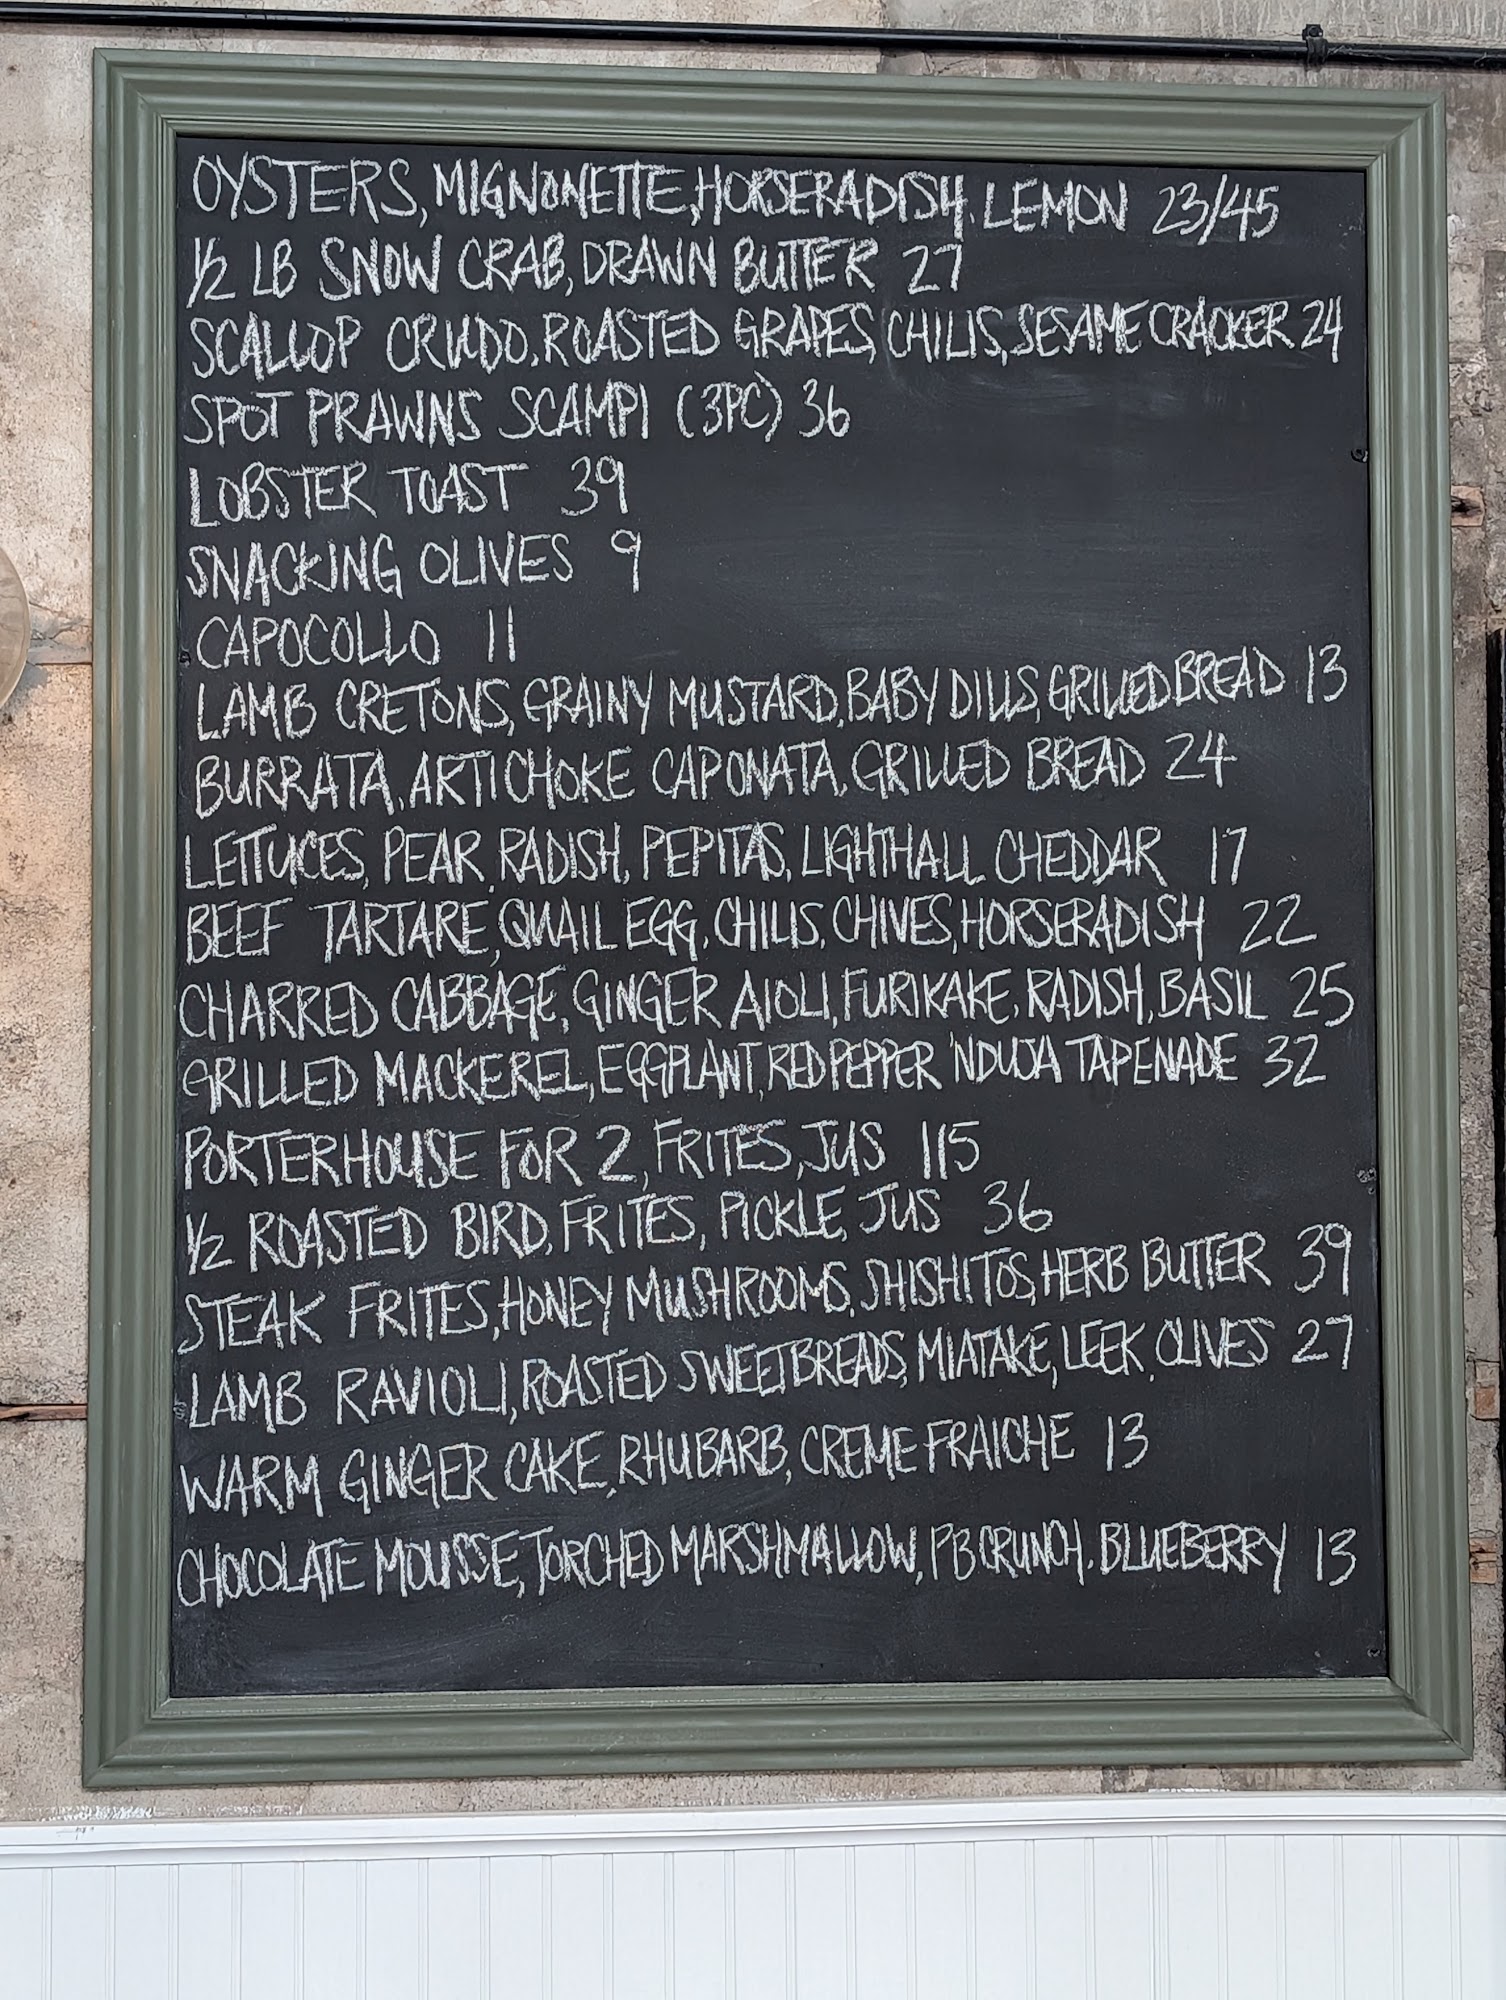 OYSTERS, MIGNONETTE, HORSERADISH, LEMON 23/45
1/2 LB SNOW CRAB, DRAWN BUTTER 27
SCALLOP CRUDO, ROASTED GRAPES, CHILIS, SESAME CRACKER 24
SPOT PRAWNS SCAMPI (3PC) 36
LOBSTER TOAST 39
SNACKING OLIVES 9
CAPOCOLLO 11
LAMB CRETONS, GRAINY MUSTARD, BABY DILLS, GRILLED BREAD 13
BURRATA, ARTICHOKE CAPONATA, GRILLED BREAD 24
LETTUCES, PEAR, RADISH, PEPITAS, LIGHTHALL CHEDDAR 17
BEEF TARTARE, QUAIL EGG, CHILIS, CHIVES, HORSERADISH 22
CHARRED CABBAGE, GINGER AIOLI, FURIKAKE, RADISH, BASIL 25
GRILLED MACKEREL, EGGPLANT, RED PEPPER 'NDUJA TAPENADE 32
PORTERHOUSE FOR 2, FRITES, JUS 115
1/2 ROASTED BIRD, FRITES, PICKLE, JUS 36
STEAK FRITES, HONEY MUSHROOMS, SHISHITOS, HERB BUTTER 39
LAMB RAVIOLI, ROASTED SWEETBREADS, MIATAKE, LEEK, OLIVES 27
WARM GINGER CAKE, RHUBARB, CREME FRAICHE 13
CHOCOLATE MOUSSE, TORCHED MARSHMALLOW, PB CRUNCH, BLUEBERRY 13